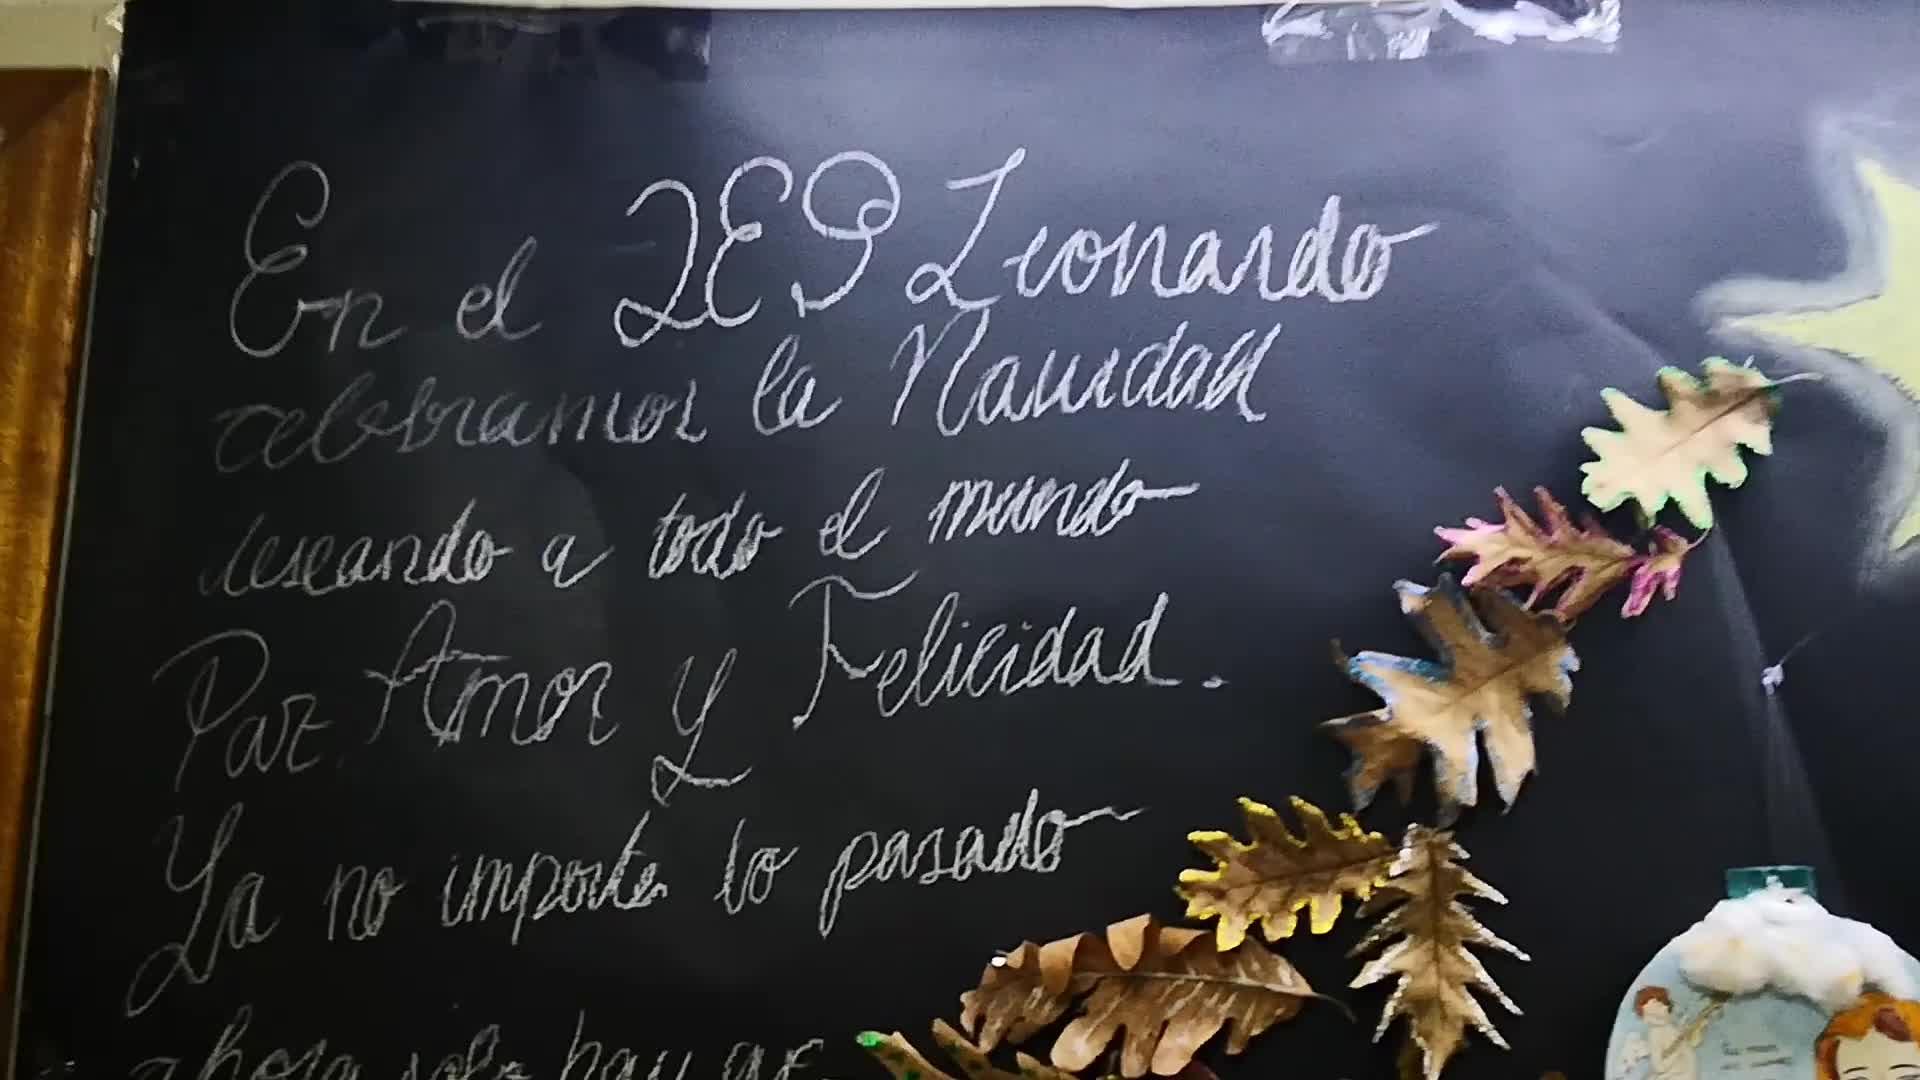 En el IES Leonardo
celebramos la Navidad
deseando a todo el mundo
Paz Amor y Felicidad.
Ya no importa lo pasado
ahora solo hay que